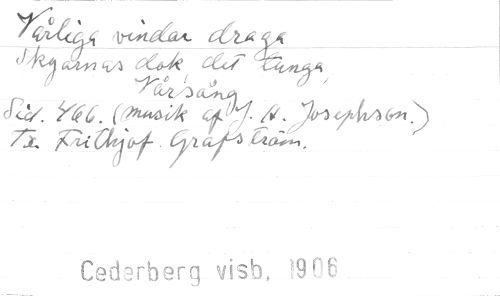 Vårliga vindar draga
Skyarnas dok det tunga,
Vårsång
Sid. 466. (musik af J. A. Josephson.)
Tx. Frithjof Grafström.
Cederberg visb, 1906